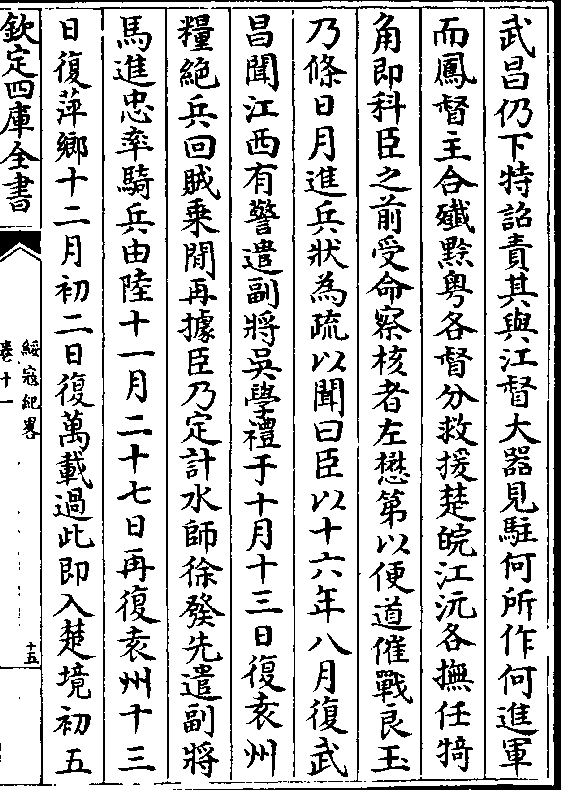 武昌仍下特詔責其與江督大器見駐何所作何進軍
而鳳督主合殱黔粤各督分救援楚皖江沅各撫任犄
角即科臣之前受命察核者左懋第以便道催戰良玉
乃條日月進兵狀為疏以聞曰臣以十六年八月復武
昌聞江西有警遣副將吳學禮于十月十三日復袁州
糧絶兵回賊乗間再據臣乃定計水師徐發先遣副將
馬進忠率騎兵由陸十一月二十七日再復袁州十三
日復萍鄉十二月初二日復萬載過此即入楚境初五
欽定四庫全書
綏寇紀畧
卷十一
十五